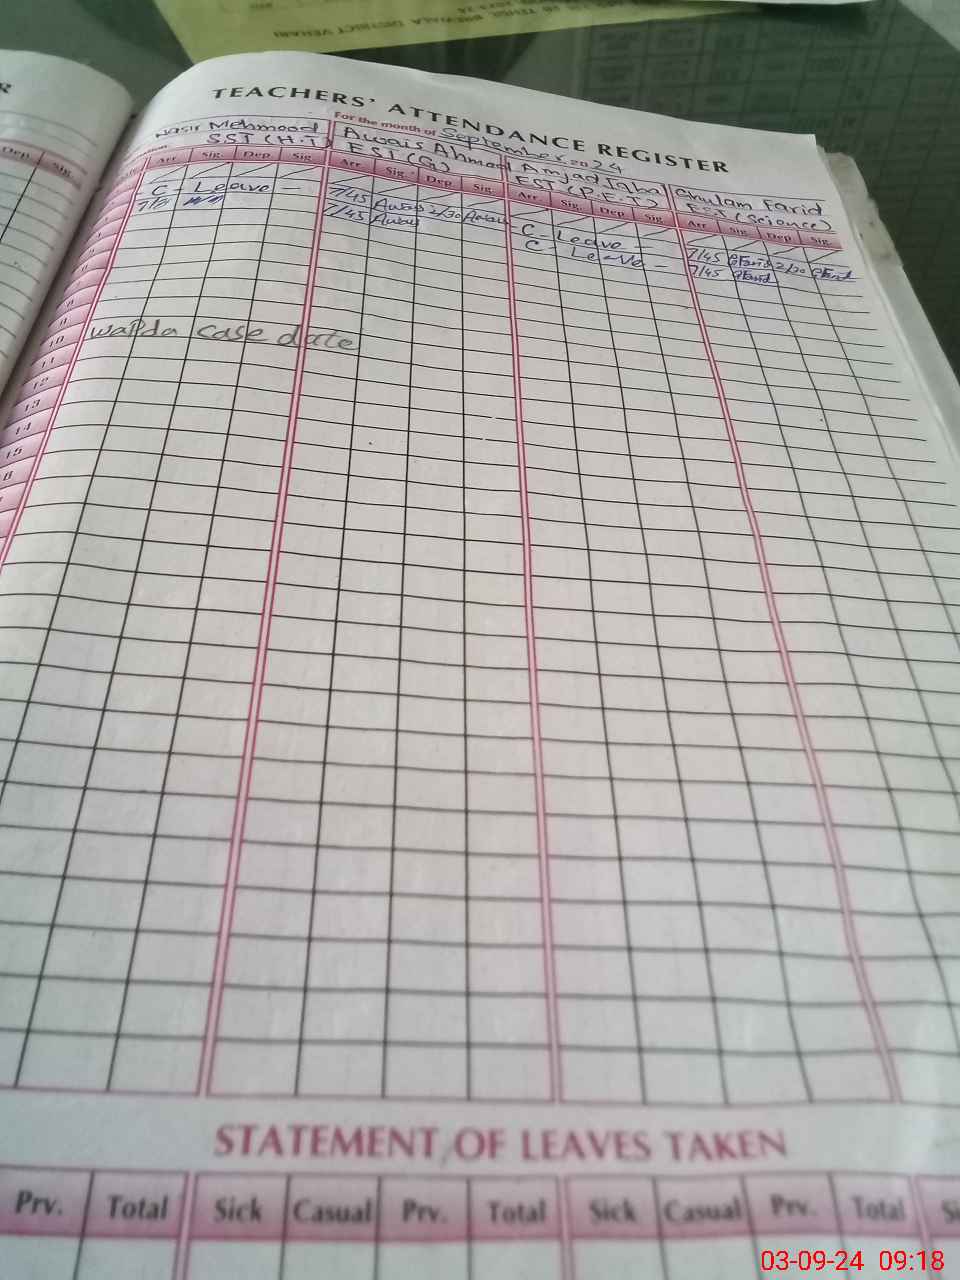 TEACHERS' ATTENDANCE REGISTER
For the month of September 2024
Nasir Mehmood Awais Ahmad Amjad Iqbal Ghulam Farid
SST (H.T) EST (G) EST (P.E.T) EST (Science)
Arr Sig. Dep Sig. Arr Sig. Dep Sig. Arr Sig. Dep Sig. Arr Sig. Dep Sig.
C - Leave - 7/45 Awais 2/30 Awais C - Leave - 7/45 GFarid 2/30 GFarid
7/45 Awais C Leave - 7/45 GFarid
9
10 wapda case date
11
12
13
14
15
STATEMENT OF LEAVES TAKEN
Prv. Total Sick Casual Prv. Total Sick Casual Prv. Total
03-09-24 09:18